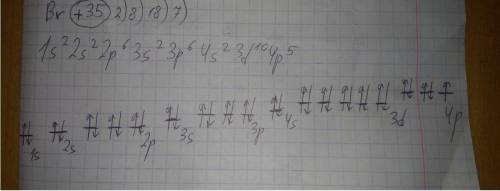 Br (+35) 2) 8) 18) 7)
1s² 2s² 2p⁶ 3s² 3p⁶ 4s² 3d¹⁰ 4p⁵
1s 2s 2p 3s 3p 4s 3d 4p